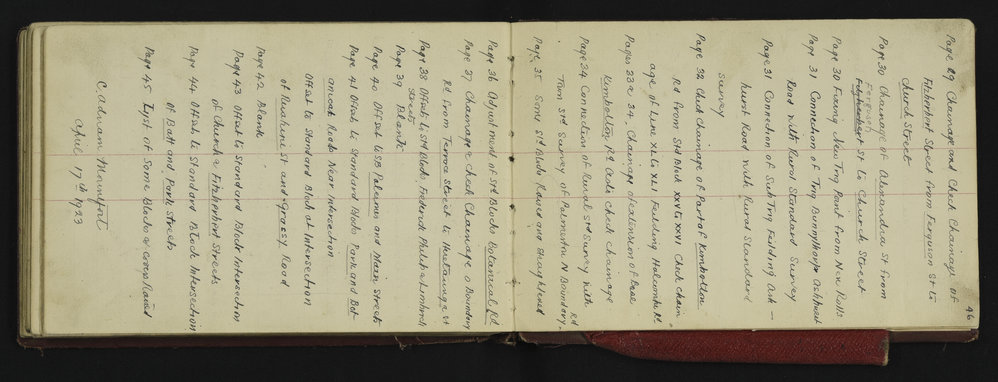 46
Page 29 Chainage and Check Chainage of
Fitzherbert Street from Ferguson St to
Church Street
Page 30 Chainage of Alexandra St from
Ferguson
St to Church Street
Page 30 Fixing New Trig Point from New Rail?
Page 31 Connection of Trig Bunnythorpe Ashhurst
Road with Rural Standard Survey
Page 31 Connection of Sub Trig Feilding Ash-
hurst Road with Rural Standard
Survey
Page 32 Check Chainage of Part of Kimbolton
Rd from Std Block XXV to XXVI Check Chain
age of Line XL to XLI Feilding Halcombe Rd
Pages 33 & 34. Chainage Realinsen of Base
Kimbolton Rd Also Check chainage
Page 34 Connection of Rural Std Survey with
Town Std Survey of Palmerston N Boundary Rd
Page 35 Some Std Blocks Raised and Straightened
Page 36 Adjustment of Std Blocks Botanical Rd
Page 37 Chainage & Check Chainage o Boundary
Rd from Terrace Street to Heretaunga St
Page 38 Offsets to Std Blocks Featherst Philip & Lombard
Streets
Page 39 Blank
Page 40 Offset to SB Palerius and Main Streets
Page 41 Offset to Standard Blocks Park and Bot
anical Roads Near Intersection
Offset to Standard Block at Intersection
of Ruahine St and Grassy Road
Page 42 Blank
Page 43 Offset to Standard Block Intersection
of Church & Fitzherbert Streets
Page 44 Offset to Standard Block Intersection
of Batt and Park Streets
Page 45 Lyst of Some Blocks & caps Placed
C. Adnam Mountfort
April 17th 1923